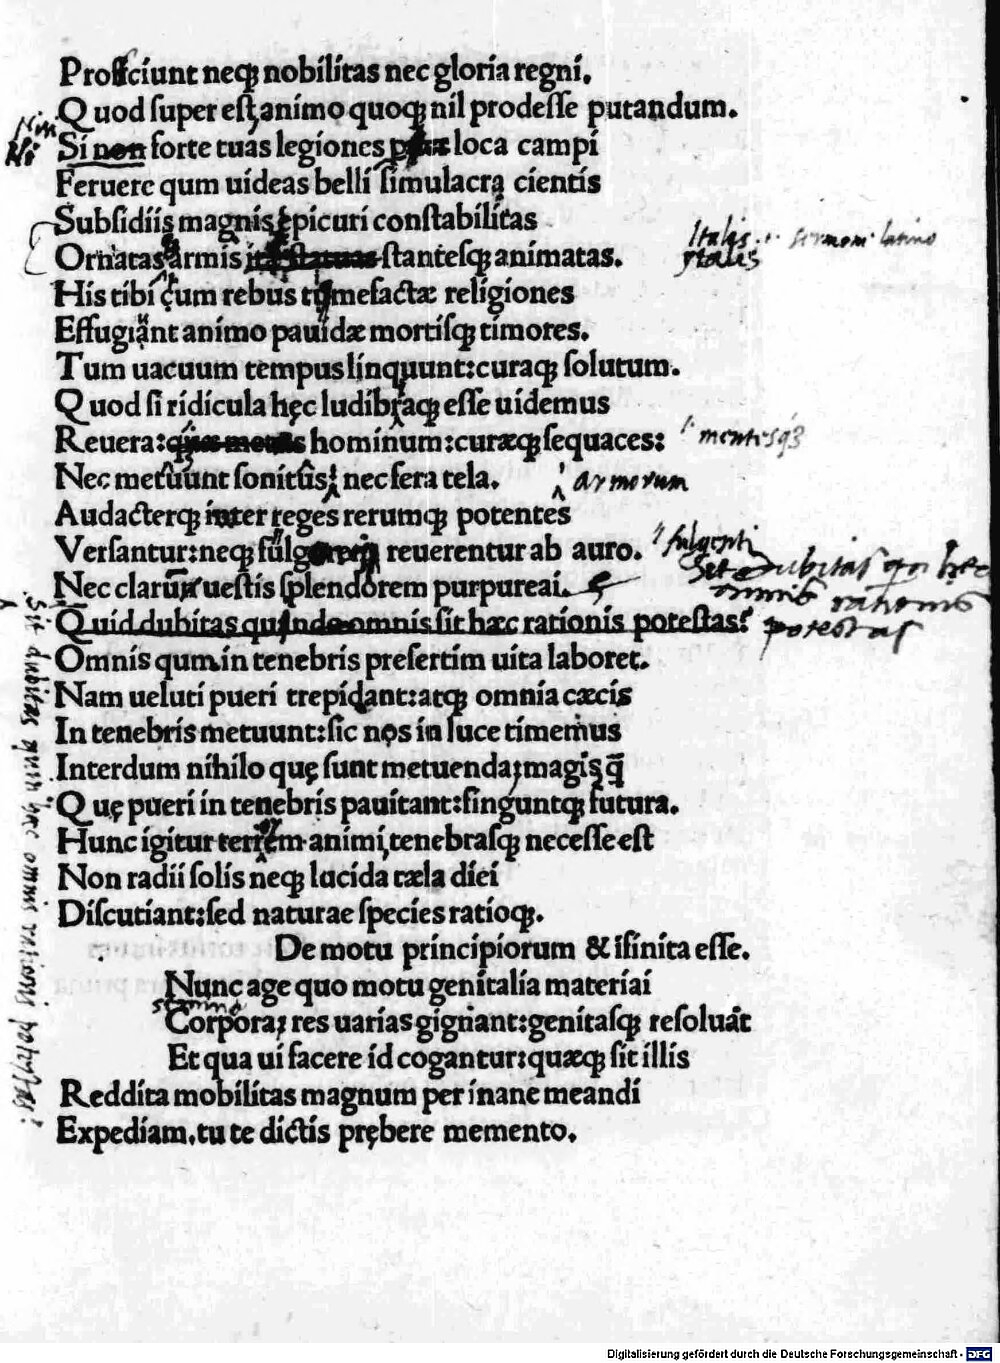 Proficiunt neqꝫ nobilitas nec gloria regni.
Quod super est, animo quoqꝫ nil prodesse putandum.
Si non forte tuas legiones loca campi
Feruere qum uideas belli simulacra cientis
Subsidiis magnis epicuri constabilitas
Ornatas armis stantesqꝫ animatas.
Italis
ytalis
sermone latino
His tibi cum rebus tumefactæ religiones
Effugiant animo pauidæ mortisqꝫ timores.
Tum uacuum tempus linquunt:curaqꝫ solutum.
Quod si ridicula hęc ludibriaqꝫ esse uidemus
Reuera: hominum:curæqꝫ sequaces:
mentesqꝫ
Nec metuunt sonitus, nec fera tela.
armorum
Audacterqꝫ inter reges rerumqꝫ potentes
Versantur:neqꝫ reuerentur ab auro.
fulgenti
Nec clarum uestis splendorem purpureai.
Quid dubitas quando omnis sit hæc rationis potestas?
dubitas
omnis rationis
potestas
Omnis qum in tenebris presertim uita laboret.
Nam ueluti pueri trepidant:atqꝫ omnia cæcis
In tenebris metuunt:sic nos in luce timemus
Interdum nihilo quę sunt metuenda, magis q̄
Quę pueri in tenebris pauitant:finguntqꝫ futura.
Hunc igitur terrorem animi, tenebrasqꝫ necesse est
Non radii solis neqꝫ lucida tæla diei
Discutiant:sed naturae species ratioqꝫ.
Sit dubitas quin hec omnis rationis potestas?
De motu principiorum & ifinita esse.
Nunc age quo motu genitalia materiai
Corpora, res uarias gignant:genitasqꝫ resoluāt
Et qua ui facere id cogantur:quæqꝫ sit illis
Reddita mobilitas magnum per inane meandi
Expediam.tu te dictis prębere memento.
Digitalisierung gefördert durch die Deutsche Forschungsgemeinschaft - DFG